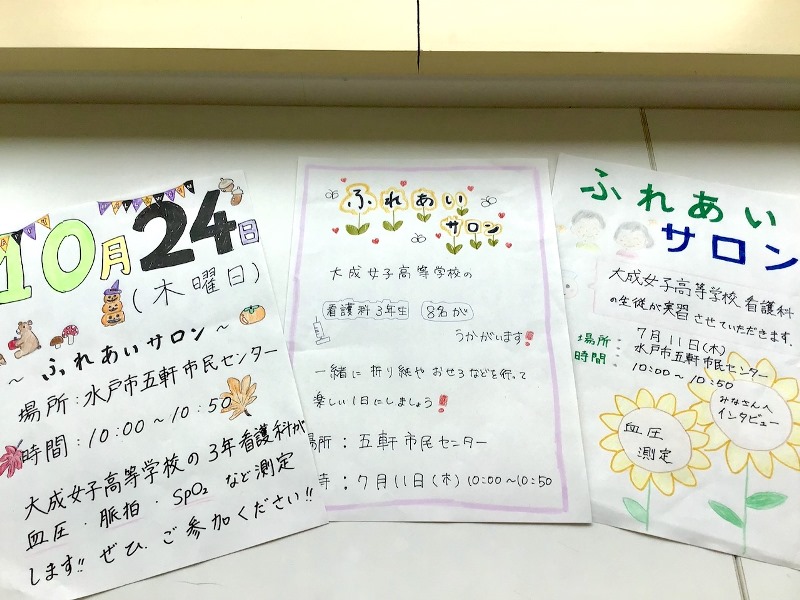 10月24日
(木曜日)
～ふれあいサロン～
場所:水戸市五軒市民センター
時間:10:00～10:50
大成女子高等学校の3年看護科が
血圧・脈拍・SpO₂など測定
します!!ぜひ、ご参加ください!!
ふれあい
サロン
大成女子高等学校の
看護科3年生 8名が
うかがいます!
一緒に折り紙やおせろなどを行って
楽しい1日にしましょう!
場所:五軒市民センター
時:7月11日(木)10:00～10:50
ふれあい
サロン
大成女子高等学校 看護科
の生徒が実習させていただきます.
場所: 7月11日(木)
水戸市五軒市民センター
時間: 10:00～10:50
みなさんへ
インタビュー
血圧
測定